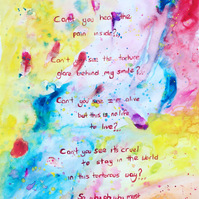 Can't you hear the
pain inside?
Can't you see the torture
glare behind my smile?
Can't you see I'm alive
but this is no life
to live?
Can't you see it's cruel
to stay in the world
in this torturous way?
So why oh why must